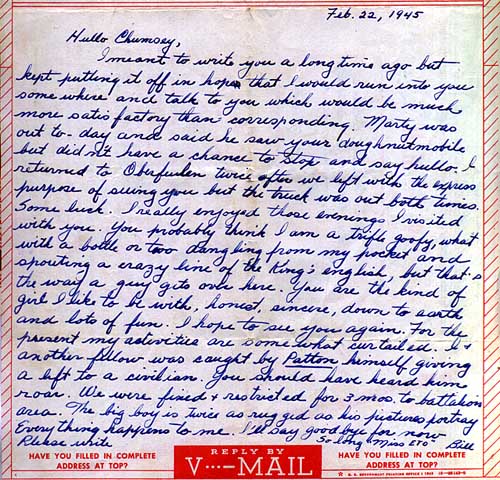 Feb. 22, 1945
Hullo Chumsey,
I meant to write you a long time ago but
kept putting it off in hopes that I would run into you
some where and talk to you which would be much
more satisfactory than corresponding. Marty was
out to-day and said he saw your doughnutmobile
but didn't have a chance to stop and say hullo. I
returned to Oberfeulen twice after we left with the express
purpose of seeing you but the truck was out both times.
Some luck. I really enjoyed those evenings I visited
with you. You probably think I am a trifle goofy, what
with a bottle or two dangling from my pocket and
spouting a crazy line of the King's english, but that's
the way a guy gets over here. You are the kind of
girl I like to be with, honest, sincere, down to earth
and lots of fun. I hope to see you again. For the
present my activities are some what curtailed. I +
another fellow was caught by Patton himself giving
a left to a civilian. You should have heard him
roar. We were fined + restricted for 3 mos. to battalion
area. The big boy is twice as rugged as his pictures portray
Everything happens to me. I'll say good bye for now
Please write
So long Miss ETO
Bill
HAVE YOU FILLED IN COMPLETE
ADDRESS AT TOP?
REPLY BY
V···—MAIL
HAVE YOU FILLED IN COMPLETE
ADDRESS AT TOP?
U. S. GOVERNMENT PRINTING OFFICE